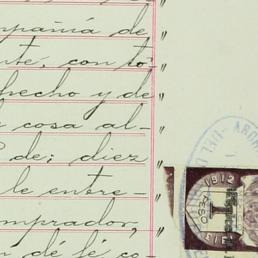 mpañía de "
nte, con to- "
hecho y de "
cosa al- "
de; diez "
le entre-
mprador,
dé fé co-
1912
1
PESO